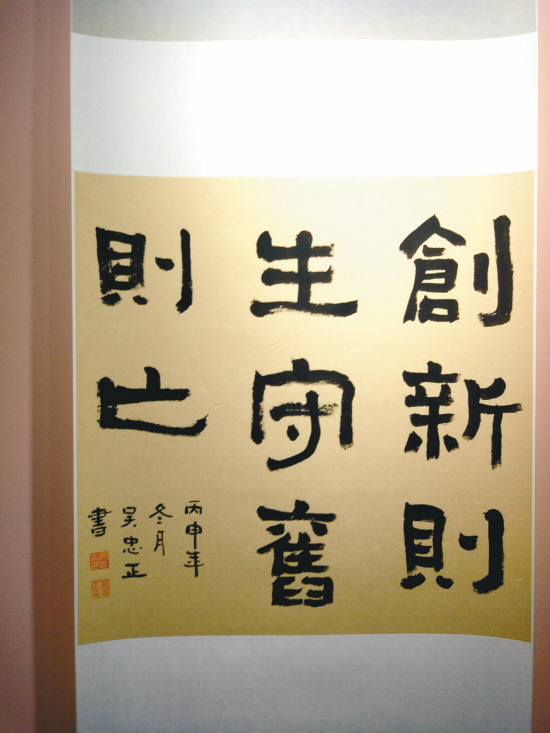 創新則
生守舊
則亡
丙申年
冬月
吴忠正
書